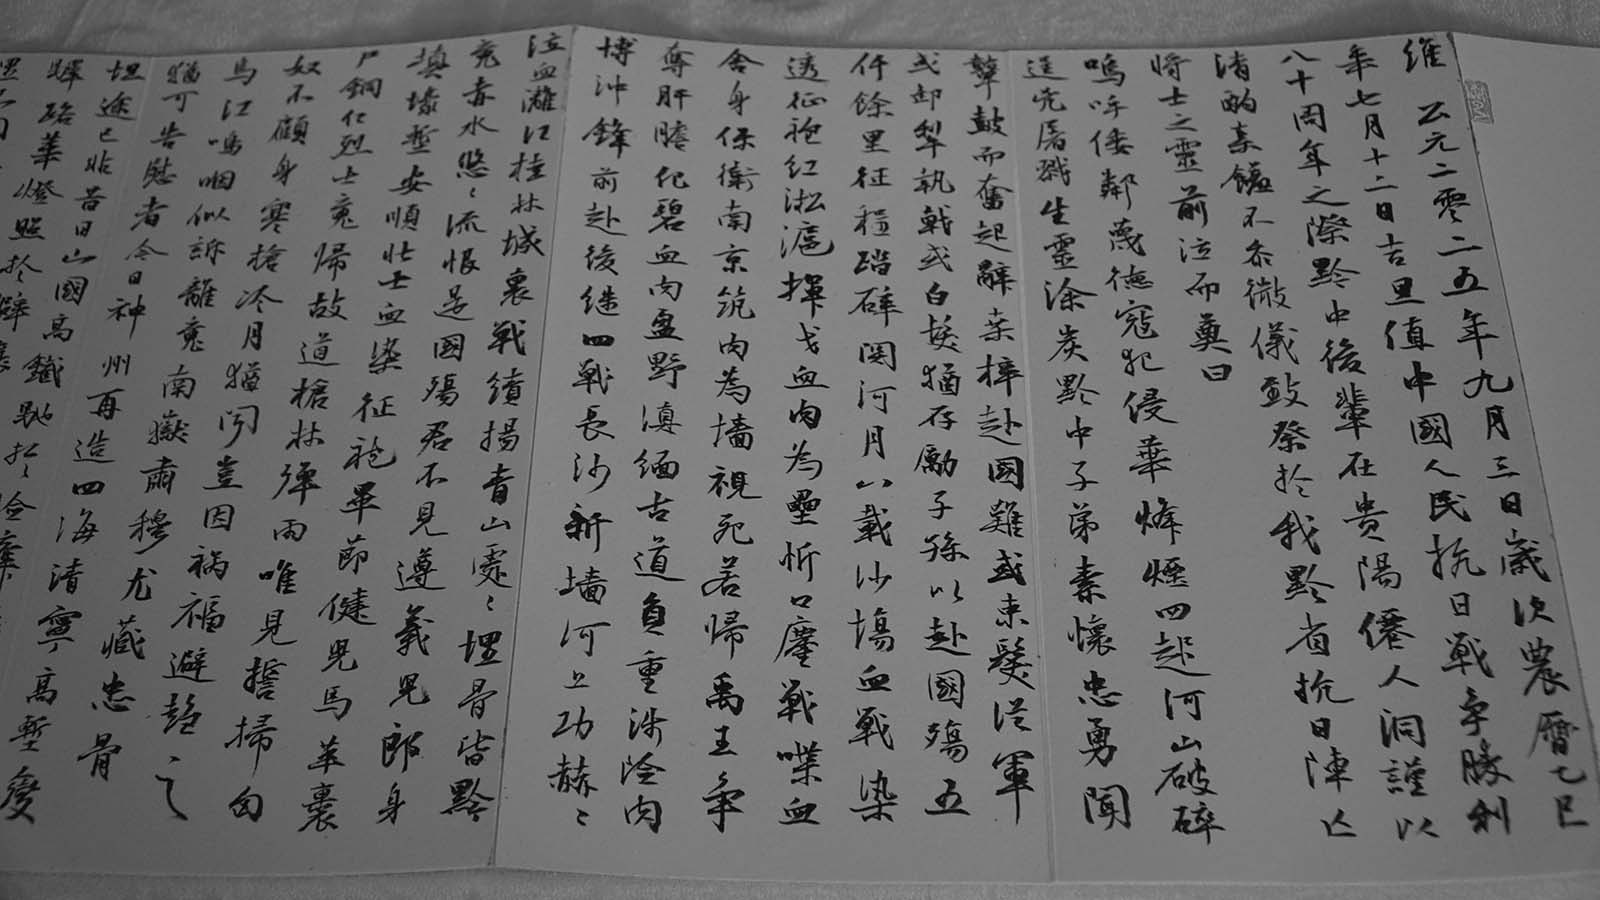 維 公元二零二五年九月三日歲次農曆乙巳
年七月十二日吉旦值中國人民抗日戰爭勝利
八十周年之際黔中後輩在貴陽僊人洞謹以
清酌素饈不恭微儀致祭於我黔省抗日陣亡
將士之靈前泣而奠曰
嗚呼倭鄰蔑德寇犯侵華烽煙四起河山破碎
逞兇屠戮生靈涂炭黔中子弟素懷忠勇聞
鼙鼓而奮起辭桒梓赴國難或束髮從軍
或卸犁執戟或白髮猶存勵子孫以赴國殤五
仟餘里征程踏碎関河月八載沙場血戰染
透征袍紅淞滬揮戈血肉為壘忻口鏖戰喋血
舍身保衛南京筑肉為墻視死若歸禹王争
奪肝膽化碧血肉盈野滇緬古道負重涉险肉
博沖鋒前赴後继四戰長沙新墙河上功赫〻
泣血灕江桂林城裏戰績揚青山處〻埋骨皆黔
兗赤水悠〻流恨是國殤君不見遵義兒郎身
填壕塹安順壯士血染征袍畢節健兒馬革裹
尸銅仁烈士魂歸故道槍林彈雨唯見擔掃匈
奴不顧身寒槍冷月猶闻豈因祸福避趋之
馬江嗚咽似訴離魂南嶽肅穆尤藏忠骨
猶可告慰者今日神州再造四海清寧高塹變
坦途已非昔日山國高鐵馳於
輝硌華燈照於